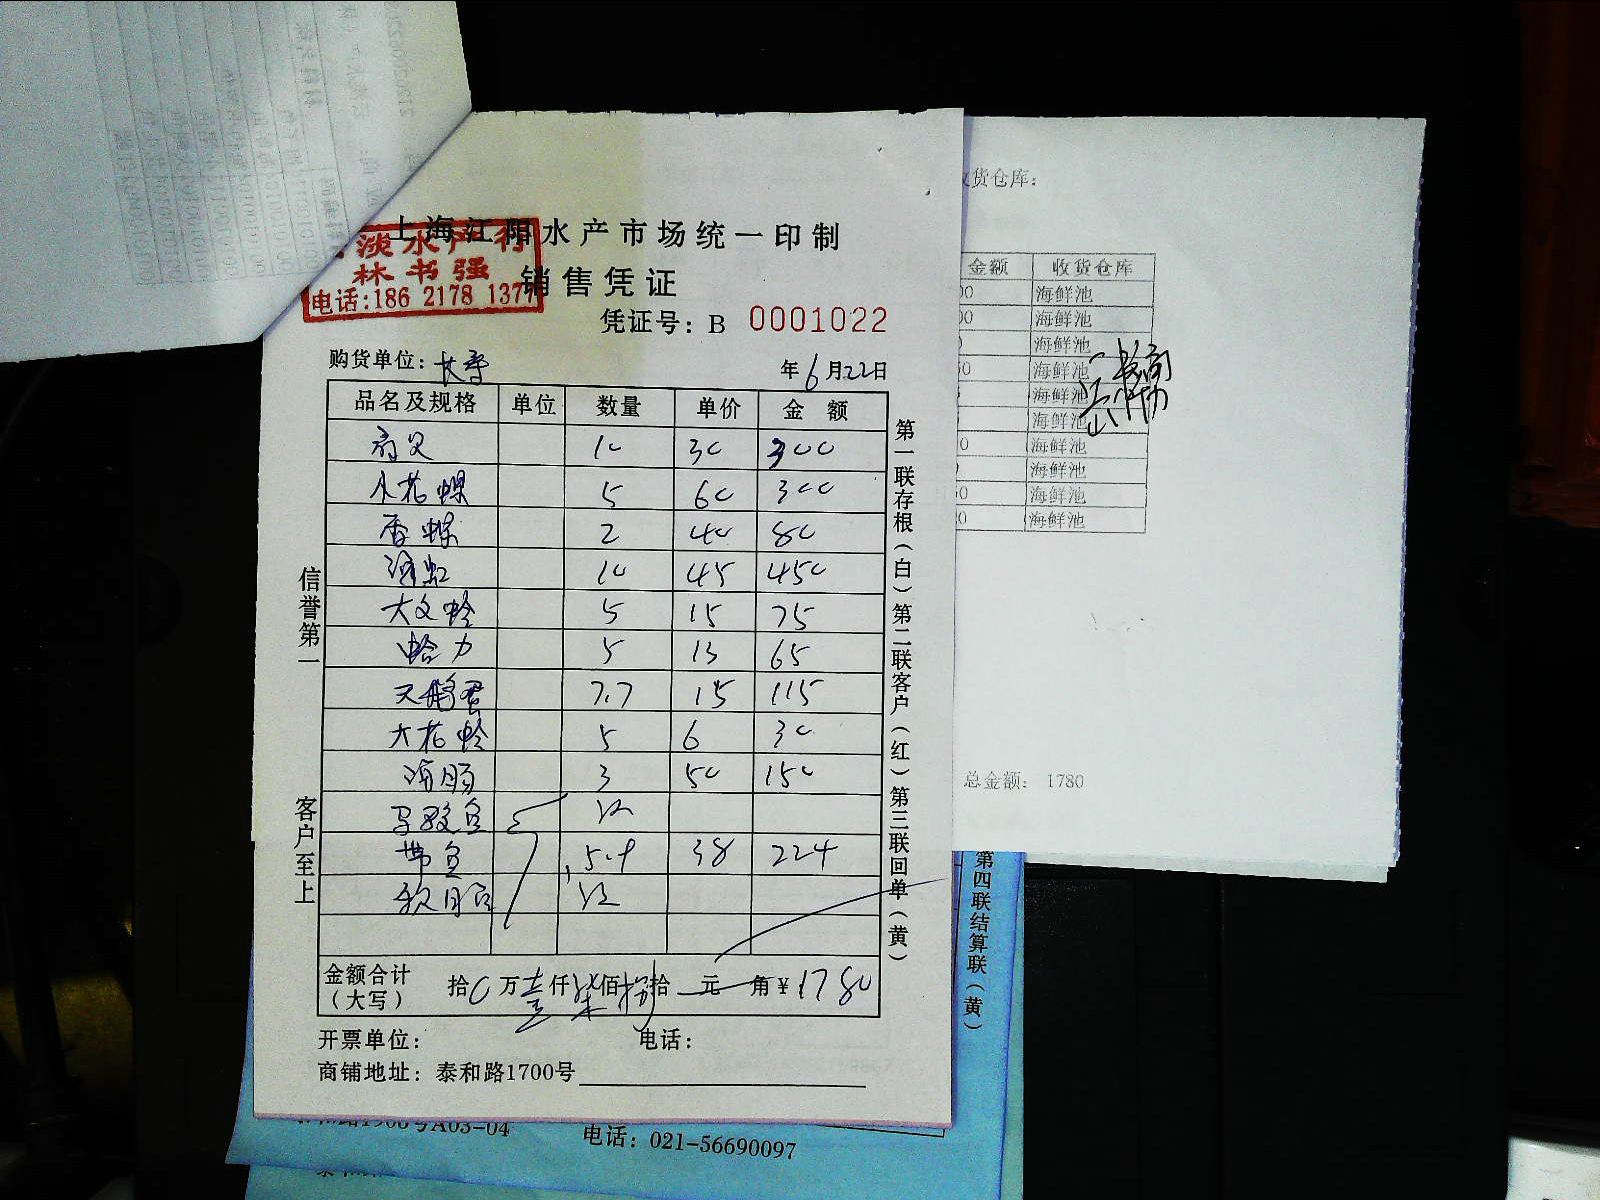 上海江阳水产市场统一印制
淡水产行
林书强
电话:186 2178 1377
销售凭证
凭证号: B 0001022
购货单位: 长寿
年6月22日
品名及规格 单位 数量 单价 金额
扇贝 10 30 300
小花螺 5 60 300
香螺 2 40 80
海虹 10 45 450
大文蛤 5 15 75
蛤力 5 13 65
天鹅蛋 7.7 15 115
大花蛤 5 6 30
海肠 3 50 150
鱼 没
带鱼 5.9 38 224
没
金额合计
(大写)
拾0万壹仟柒佰捌拾 元 角¥1780
开票单位: 电话:
商铺地址: 泰和路1700号
信誉第一
客户至上
第一联存根(白)第二联客户(红)第三联回单(黄)
货仓库:
金额 收货仓库
00 海鲜池
00 海鲜池
海鲜池
50 海鲜池
海鲜池
海鲜池
0 海鲜池
海鲜池
50 海鲜池
20 海鲜池
总金额: 1780
第四联结算联(黄)
A03-04
电话: 021-56690097